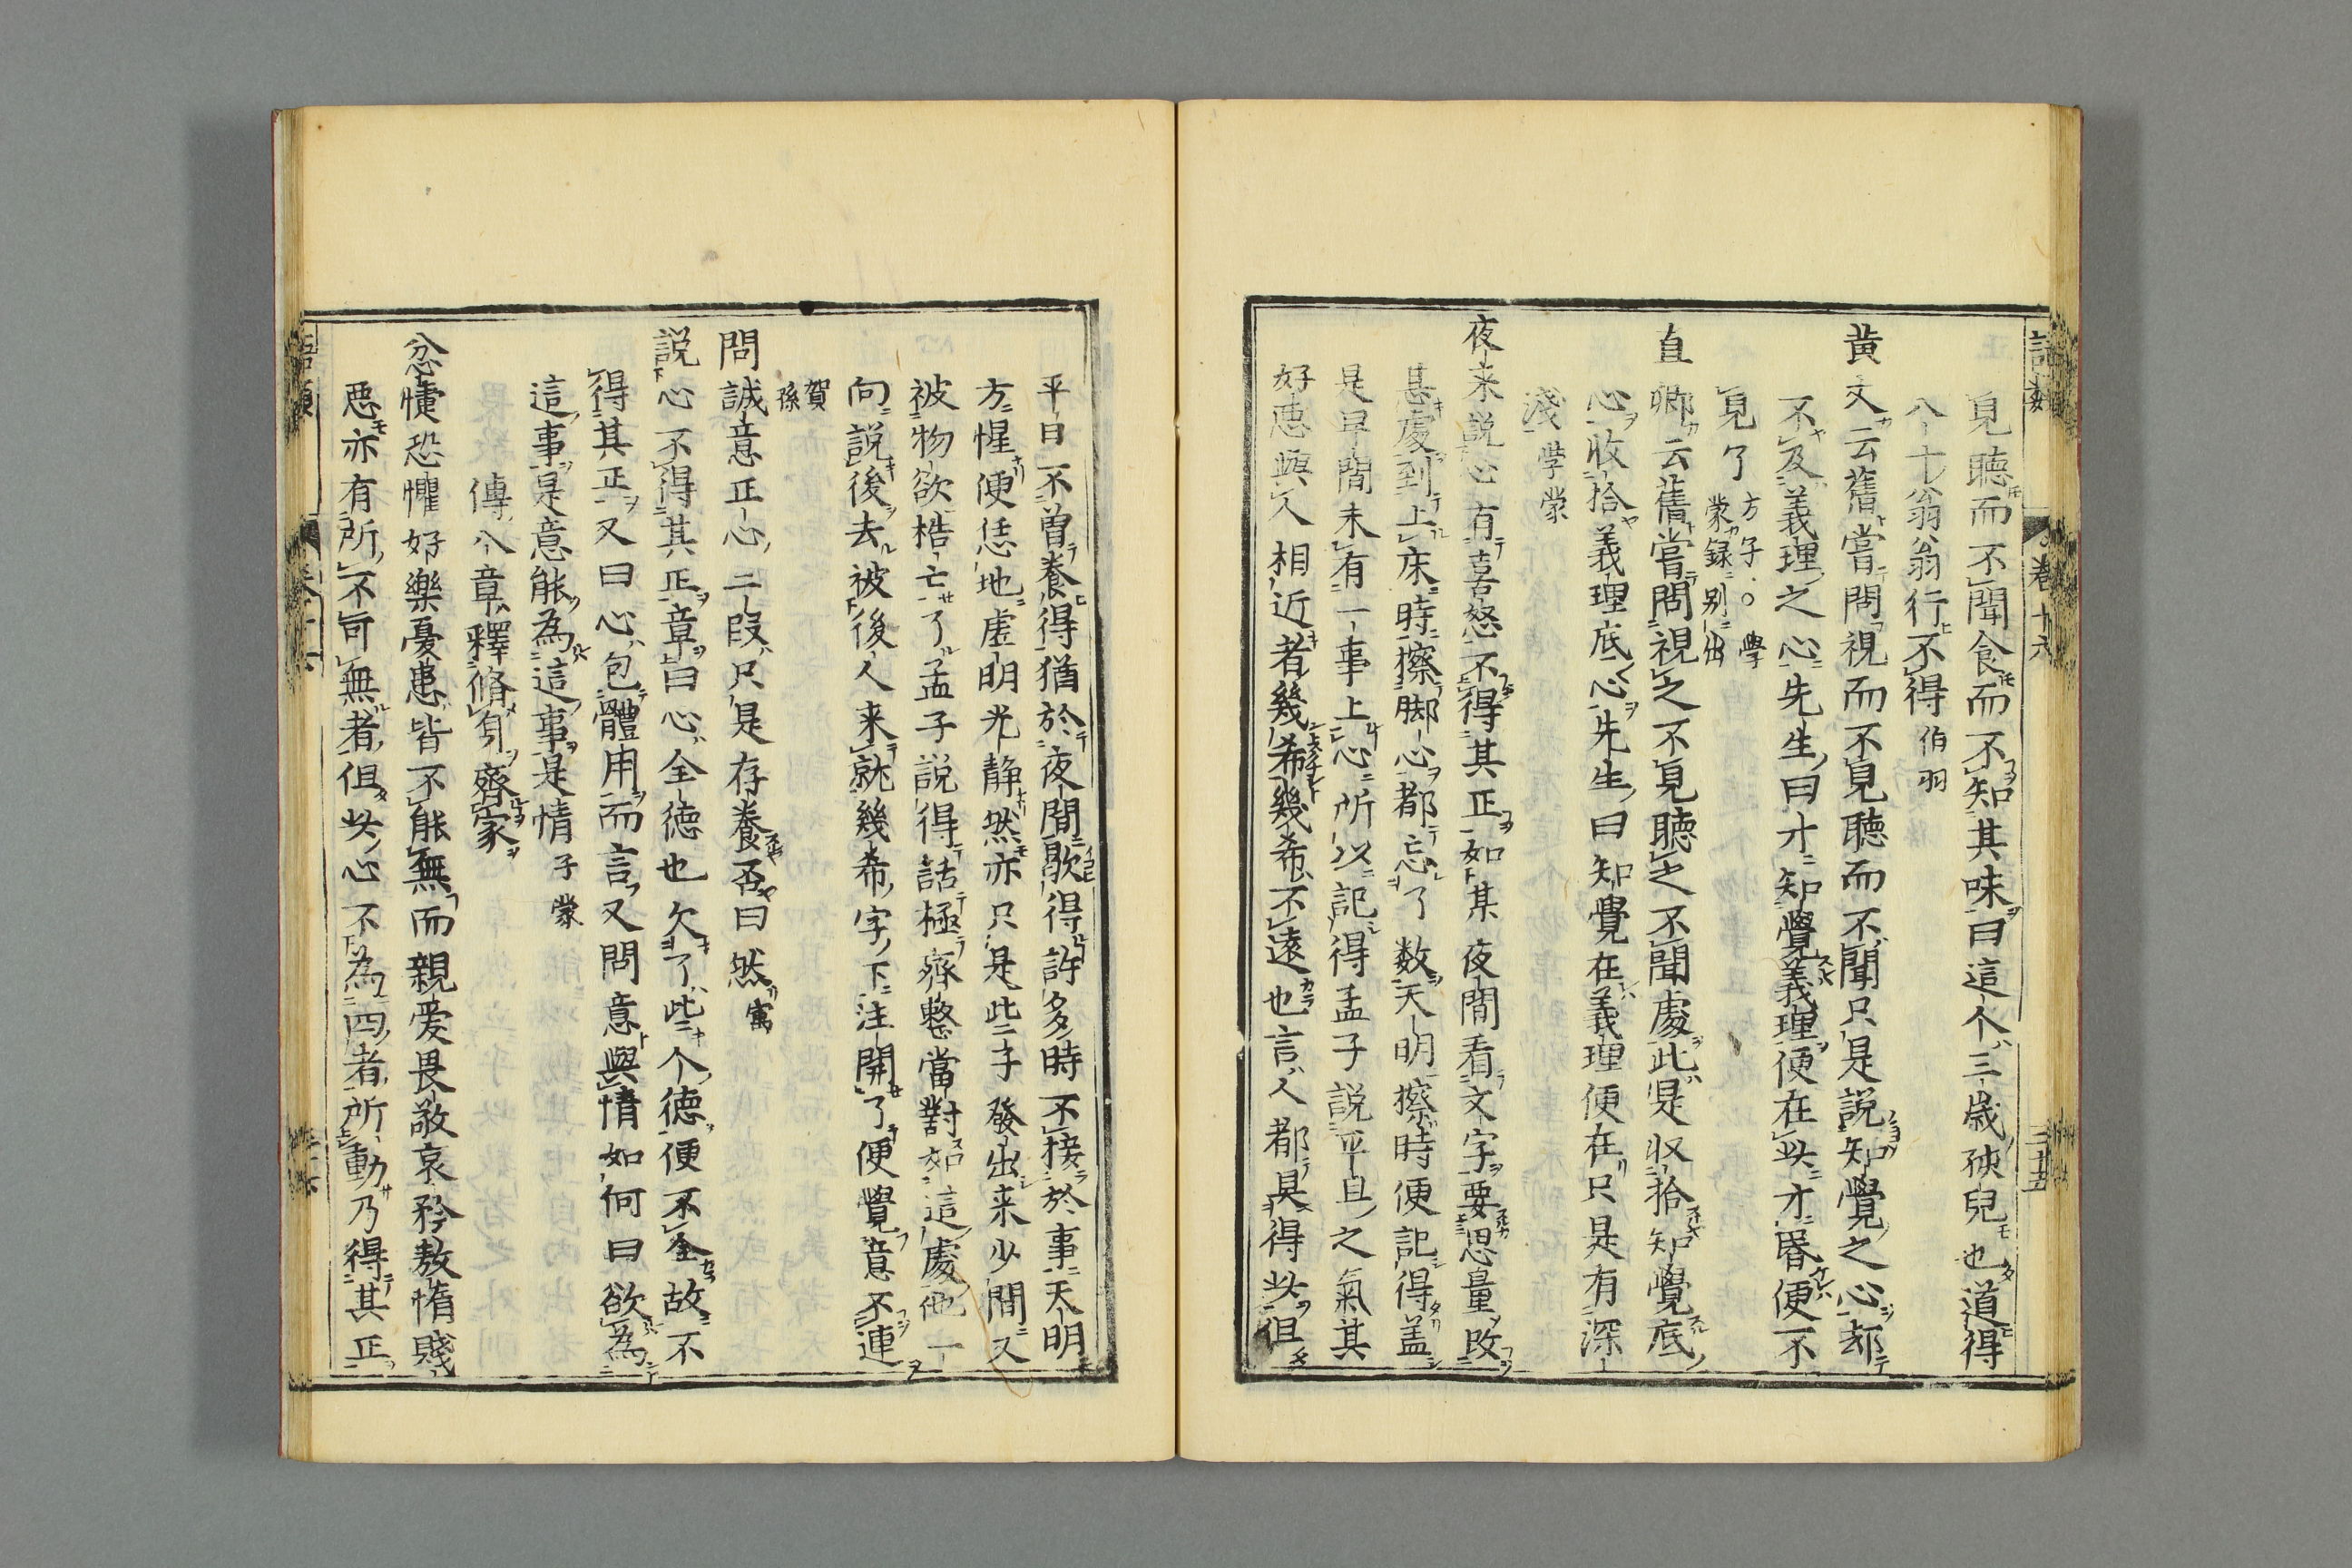 語類
卷十六
三十五
見聽而不聞食而不知其味曰這个三歲孩兒也道得
八十翁翁行不得伯羽
黃丈云舊嘗問視而不見聽而不聞只是說知覺之心却
不及義理之心先生曰才知覺義理便在此才昏便不
見了方子○學蒙録別出
直卿云舊嘗問視之不見聽之不聞處此是收拾知覺底
心收拾義理底心先生曰知覺在義理便在只是有深
淺學蒙
夜来說心有喜怒不得其正如某夜間看文字要思量改
甚處到上床時擦脚心都忘了数天明擦時便記得盖
是早間未有一事上心所以記得孟子說平旦之氣其
好惡與人相近者幾希幾希不遠也言人都具得此但
平日不曽養得猶於夜間歇得許多時不接於事天明
方惺便恁地虛明光静然亦只是些子發出来少間又
被物欲梏亡了孟子說得話極齊整當對如這處他一
向說後去被後人来就幾希字下注開了便覺意不連
賀孫
問誠意正心二段只是存養否曰然㝢
說心不得其正章曰心全德也欠了些个德便不全故不
得其正又曰心包體用而言又問意與情如何曰欲為
這事是意能為這事是情子蒙
傳八章釋脩身齊家
忿懥恐懼好樂憂患皆不能無而親爱畏敬哀矜敖惰賤
惡亦有所不可無者但此心不為四者所動乃得其正
語類
卷十六
三十六